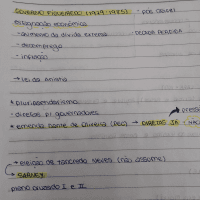 GOVERNO FIGUEIREDO (1979-1985) - pós Geisel
estagnação econômica
- aumento da dívida externa - DÉCADA PERDIDA
- desemprego
- inflação
→ lei da Anistia
* pluripartidarismo
- diretas p/ governadores
* emenda Dante de Oliveira (PEC) → DIRETAS JÁ
* eleição de Tancredo Neves (não assume)
→ SARNEY
plano cruzado I e II